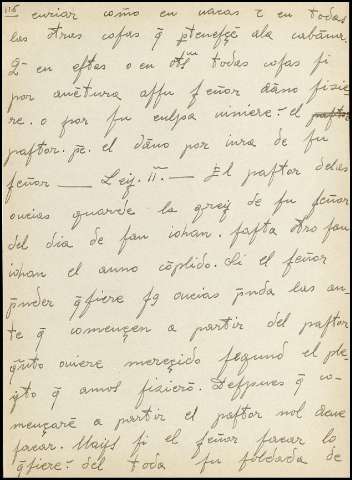 116 curiar como en vacas τ en todas
las otras cosas q̄ ꝑteneſçē ala cabāna.
Q̄ en eſtas o en otͣs todas cosas ſi
por auētura aſſu ſeñor dāno fizie
re. o por ſu culpa viniere. el
paſtor. pc̄. el dāno por iura de ſu
ſeñor ___ Ley. II.ª ___ El paſtor delas
oueias guarde la grey de ſu ſeñor
del dia de ſan iohan. faſta otro ſan
iohan el anno cōplido. Si el ſeñor
p̄nder q̄ſiere ſꝯ oueias p̄nda las an-
te q̄ començen a partir del paſtor
q̄nto ouiere mereçido ſegund el ple-
yto q̄ amos fizierō. Deſpues q̄ co-
mençarē a partir el paſtor nol deue
ſacar. Mays ſi el ſeñor ſacar lo
q̄ſiere. del toda ſu ſoldada de